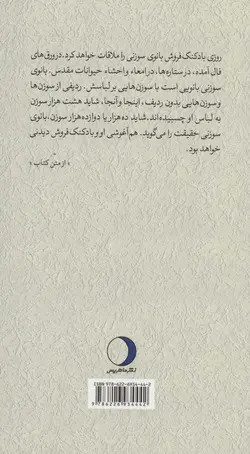 روزی بادکنک‌فروش بانوی سوزنی را ملاقات خواهد کرد. در ورق‌های
فال آمده، در ستاره‌ها، در امعاء و احشاء حیوانات مقدس. بانوی
سوزنی بانویی است با سوزن‌هایی بر لباسش. ردیفی از سوزن‌ها
و سوزن‌هایی بدون ردیف، اینجا و آنجا، شاید هشت هزار سوزن
به لباس او چسبیده‌اند. شاید ده هزار یا دوازده هزار سوزن. بانوی
سوزنی حقیقت را می‌گوید. هم‌آغوشی او و بادکنک‌فروش دیدنی
خواهد بود.
« از متن کتاب »
ISBN: 978-622-6954-44-2
9 786226 954442